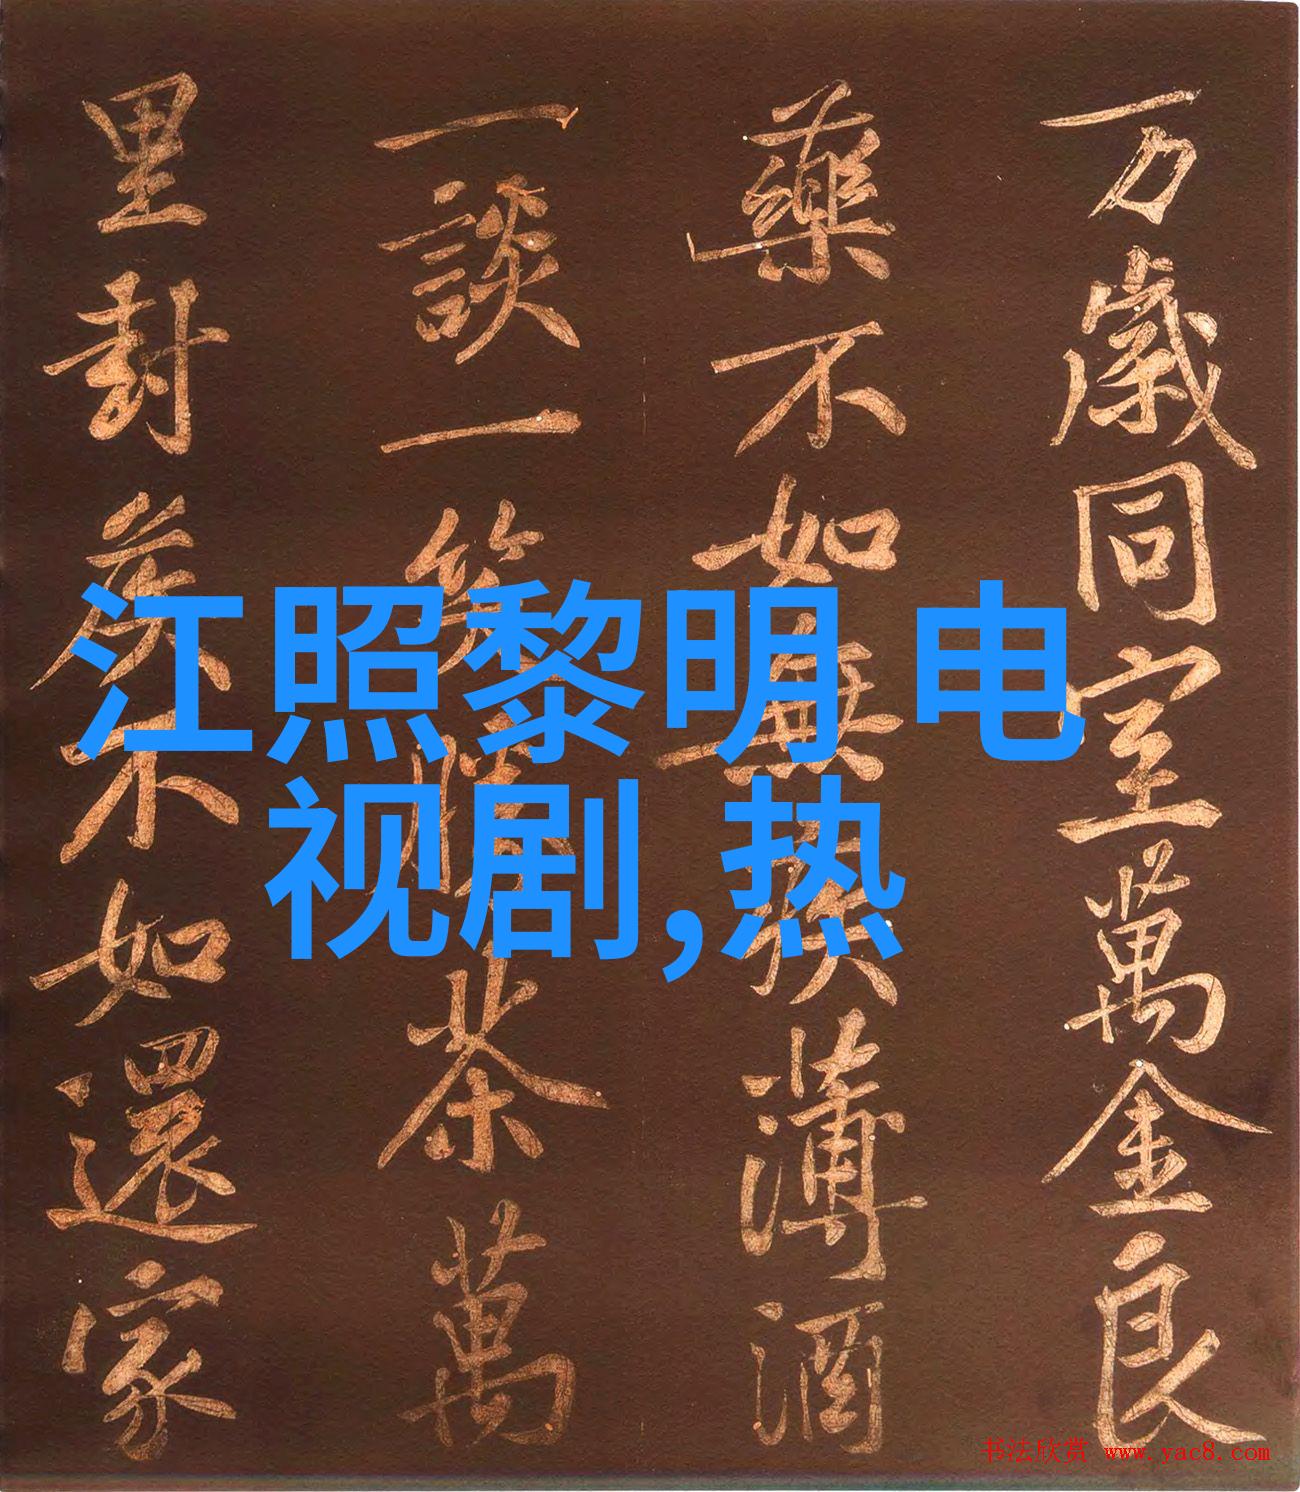 万歲同室萬金良
藥不如無疾薄酒
一談一笑勝茶萬
里封侯不如還家
江照黎明 电
视剧,热
书法欣赏 www.yac8.com